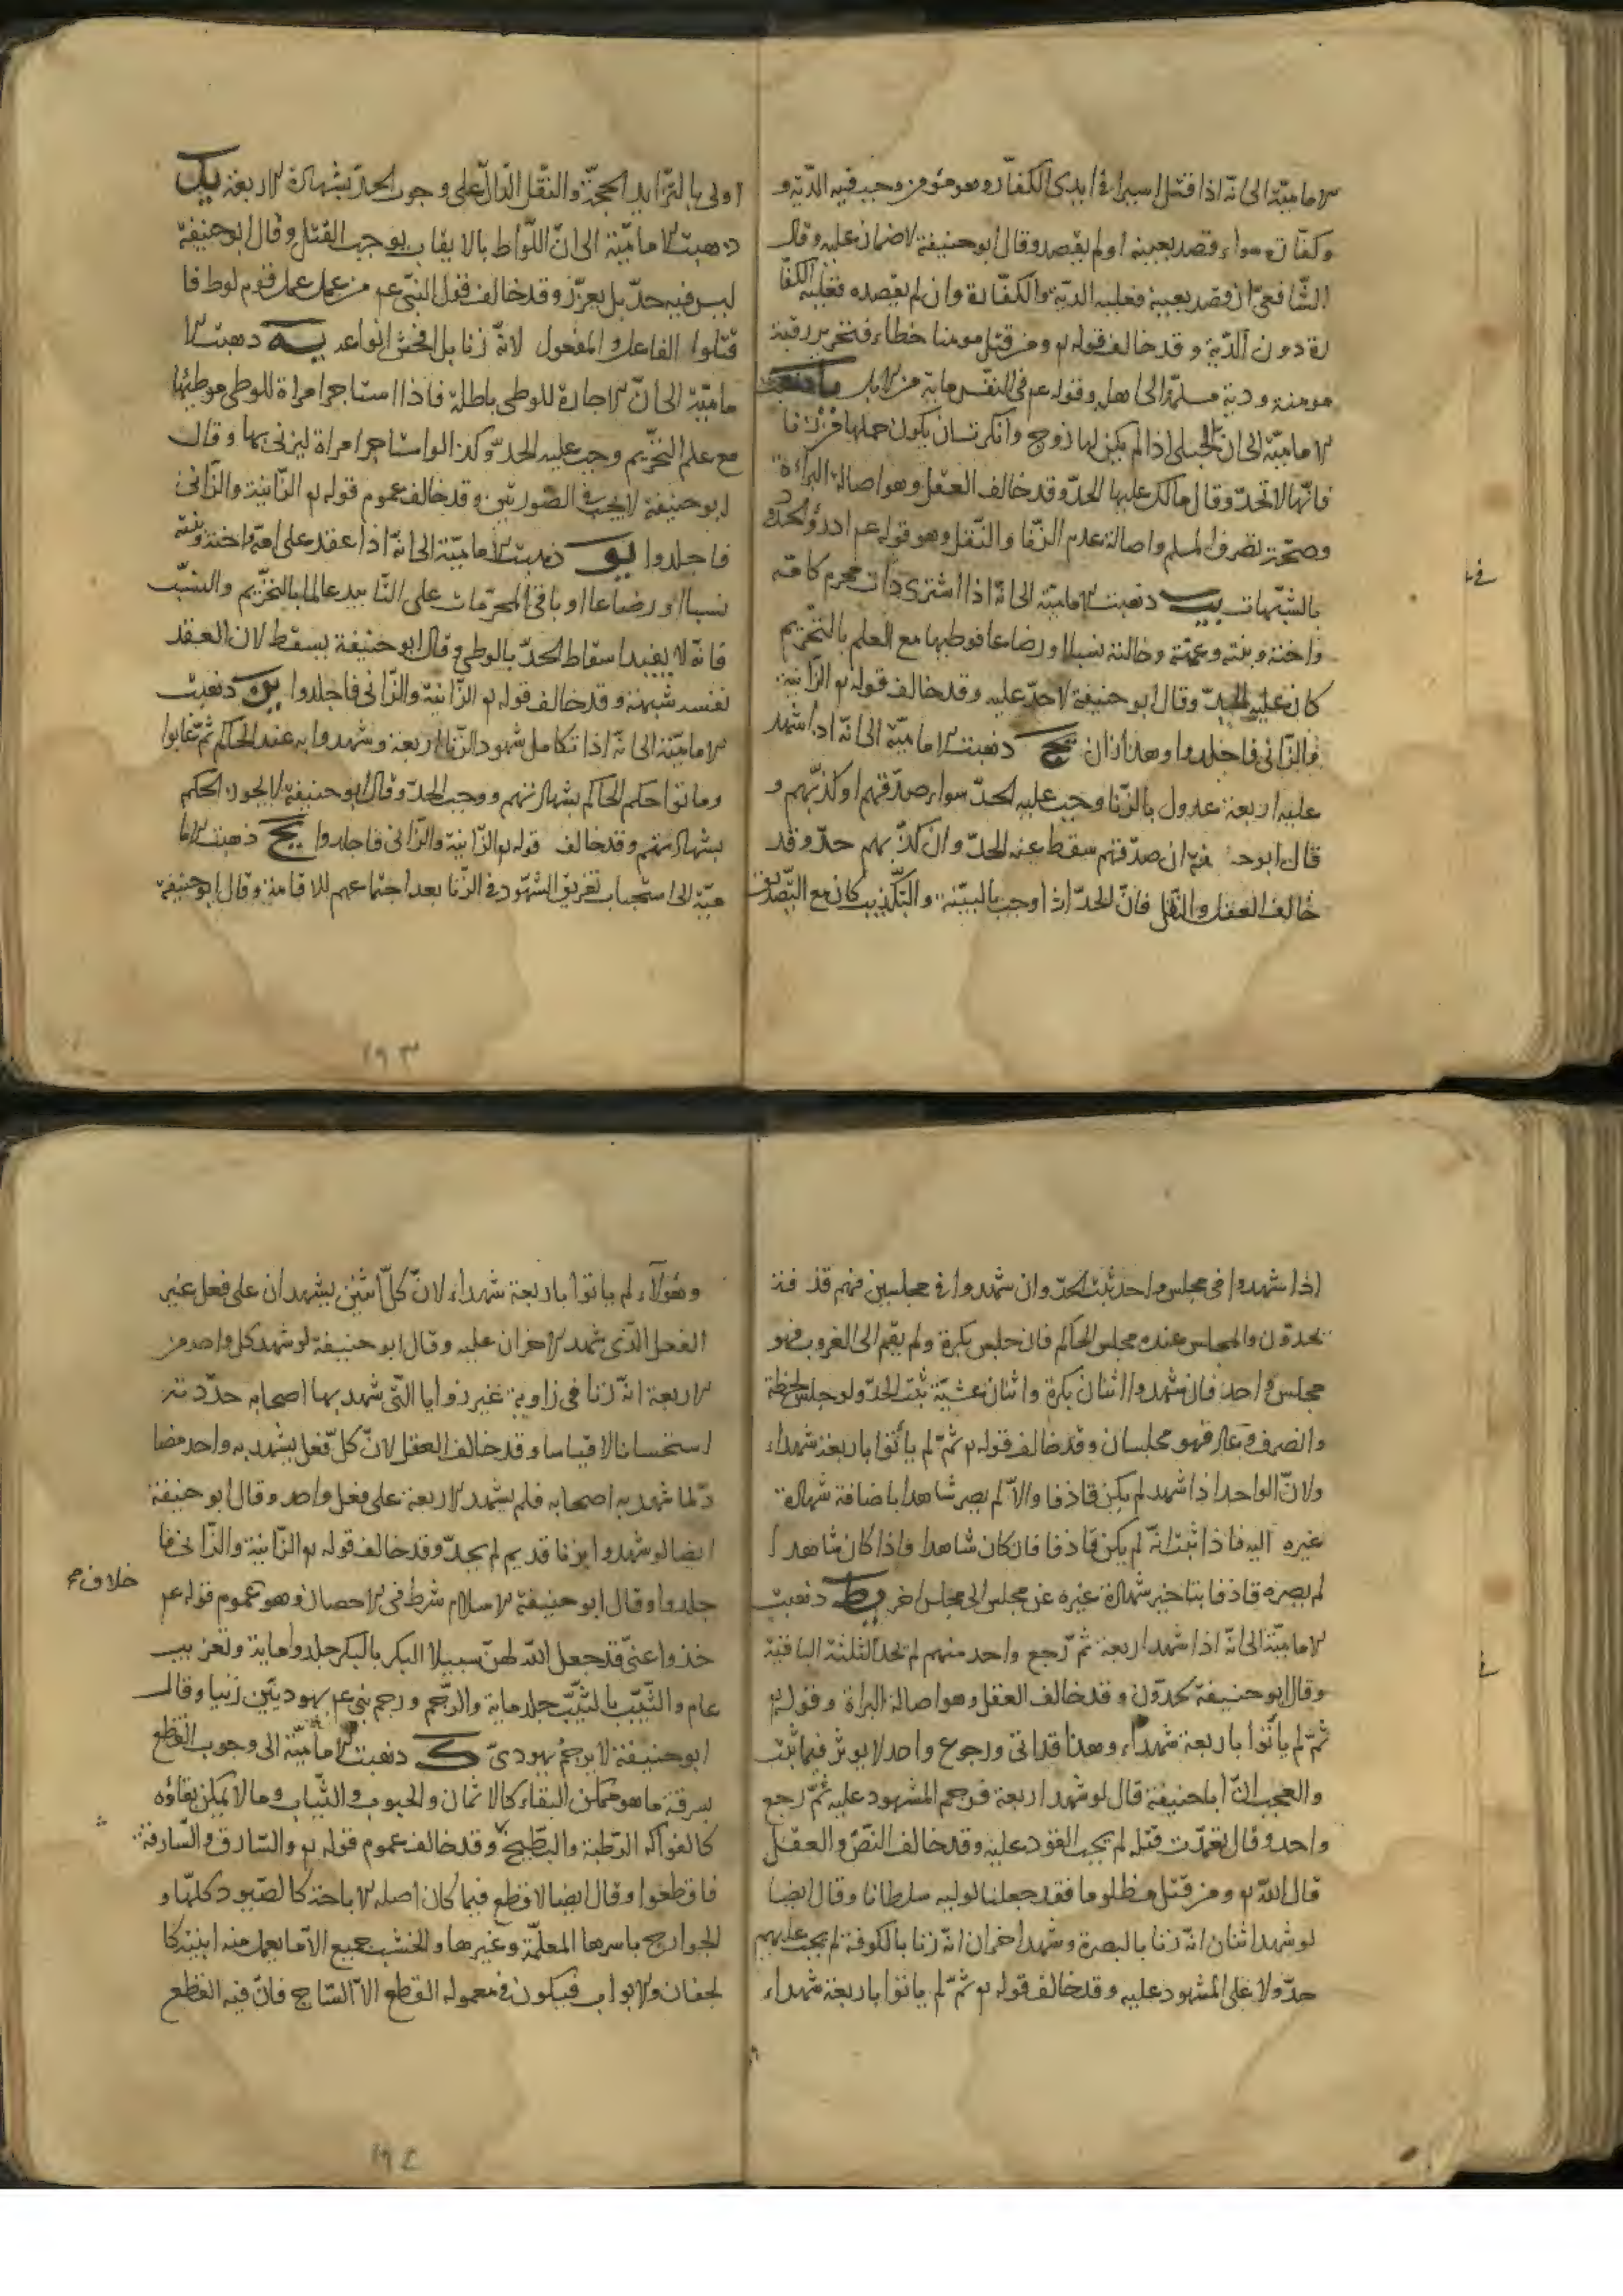 الامامیّة الى انّه اذا قتل اسیرا فی ایدی الکفّار وهو مؤمن وجب فیه الدّیة و
وکفّارة سواء قصد بعینه او لم یقصد وقال ابو حنیفة لا ضمان علیه وقال
الشّافعیّ ان قصد بعینه فعلیه الدیّة والکفّارة وان لم یقصده فعلیه الکفّا
رة دون الدّیة وقد خالف قوله تع ومن قتل مومنا خطاء فتحریر رقبة
مومنة ودیة مسلّمة الى اهله وقوله عم فی النفس مایة من الابل یا ذهبت
الامامیّة الى ان الحبلى اذا لم یکن لها زوج وانکرت ان یکون حملها من زنا
فانّها لا تحدّ وقال مالک علیها الحدّ وقد خالف العقل وهو اصالة البراءة
وصحّة تصرف المسلم واصالة عدم الزّنا والنّقل وهو قوله عم ادرؤا الحدود
بالشبّهات یب ذهبت الامامیّة الى انّه اذا اشترى ذات محرم کامّه
واخته وبنته وعمّته وخالته نسبا او رضاعا فوطیها مع العلم بالتّحریم
کان علیه الحدّ وقال ابو حنیفة لا حدّ علیه وقد خالف قوله تع الزّانیة
والزّانی فاجلدوا وهذا زان یج ذهبت الامامیّة الى انّه اذا شهد
علیه اربعة عدول بالزّنا وجب علیه الحدّ سواء صدّقهم او کذّبهم و
قال ابوحـ انّه ان صدّقهم سقط عنه الحدّ وان کذّبهم حدّ وقد
خالف العقل والنّقل فانّ الحدّ اذا وجب بالبیّنة والتّکذیب کان مع التّصدیق
اولى بالتّزاید الحجّة والنّقل الدّال على وجوب الحدّ بشهادة الاربعة ید
ذهبت الامامیّة الى انّ اللّواط بالایقاب یوجب القتل وقال ابو حنیفة
لیس فیه حدّ بل یعزّر وقد خالف قول النبیّ عم من عمل عمل قوم لوط فا
قتلوا الفاعل والمفعول لانّه زنا بل افحش انواعه یه ذهبت الا
مامیّة الى انّ الاجارة للوطی باطلة فاذا استاجر امراة للوطی فوطیها
مع علم التّحریم وجب علیه الحدّ وکذا لو استاجر امراة لیزنی بها وقال
ابو حنیفة لا یجب فی الصّورتین وقد خالف عموم قوله تع الزّانیة والزّانی
فاجلدوا یو ذهبت الامامیّة الى انّه اذا عقد على امّه واخته وبنته
نسبا او رضاعا او باقی المحرّمات على التّابید عالما بالتّحریم والنسب
فانّه لا یفید اسقاط الحدّ بالوطی وقال ابو حنیفة یسقط لان العقد
نفسه شبهة وقد خالف قوله تع الزّانیة والزّانی فاجلدوا یز ذهبت
الامامیّة الى انّه اذا تکامل شهود الزّنا اربعة وشهدوا به عند الحاکم ثمّ غابوا
وماتوا حکم الحاکم بشهادتهم ووجب الحدّ وقال ابو حنیفة لا یجوز الحکم
بشهادتهم وقد خالف قوله تع الزّانیة والزّانی فاجلدوا یح ذهبت الاما
میّة الى استحباب تفریق الشّهود فی الزّنا بعد اجتماعهم للاقامة وقال ابو حنیفة
١٩٣
اذا شهدوا فی مجلس واحد ثبت الحدّ وان شهدوا فی مجلسین فهم قذفة
یحدّون والمجلس عنده مجلس الحاکم فان جلس بکرة ولم یقم الى الغروب فهو
مجلس واحد فان شهدوا اثنان بکرة واثنان عشیّة ثبت الحدّ ولو جلس لحظة
وانصرف وعاد فهو مجلسان وقد خالف قوله تع ثمّ لم یاتوا باربعة شهداء
ولانّ الواحد اذا شهد لم یکن قاذفا والّا لم یصر شاهدا باضافة شهادة
غیره الیه فاذا ثبت انّه لم یکن قاذفا فان کان شاهدا فاذا کان شاهدا
لم یصره قاذفا بتاخیر شهادة غیره عن مجلس الى مجلس اخر یط ذهبت
الامامیّة الى انّه اذا شهد اربعة ثمّ رجع واحد منهم لم تحد الثلثة الباقیة
وقال ابو حنیفة یحدّون وقد خالف العقل وهو اصالة البراة وقوله تع
ثمّ لم یاتوا باربعة شهداء وهذا قد اتى ورجوع واحد لا یوثر فیما ثبت
والعجب انّ ابا حنیفة قال لو شهد اربعة فرجم المشهود علیه ثمّ رجع
واحد وقال تعمّدت قتله لم یجب القود علیه وقد خالف النصّ والعقل
قال اللّه تع ومن قتل مظلوما فقد جعلنا لولیه سلطانا وقال ایضا
لو شهد اثنان انّه زنا بالبصرة وشهد اخران انّه زنا بالکوفة لم یجب علیهم
حدّ ولا على المشهود علیه وقد خالف قوله تع ثمّ لم یاتوا باربعة شهداء
وهؤلآء لم یاتوا باربعة شهداء لانّ کلّ اثنین یشهدان على فعل غیر
الفعل الّذی شهد الاخران علیه وقال ابو حنیفة لو شهد کل واحد من
الاربعة انّه زنا فی زاویة غیر زوایا الّتی شهد بها اصحابه حدّدته
استحسانا لا قیاسا وقد خالف العقل لانّ کلّ فعل یشهد به واحد مضا
دّ لما شهد به اصحابه فلم یشهد الاربعة على فعل واحد وقال ابو حنیفة
ایضا لو شهدوا بزنا قدیم لم یحدّ وقد خالف قوله تع الزّانیة والزّانی فا
جلدوا وقال ابو حنیفة الاسلام شرط فی الاحصان وهو عموم قوله عم
خلاف
خذوا عنّی قد جعل اللّه لهنّ سبیلا البکر بالبکر جلد وامایة وتغریب
عام والثّیّب بالثّیّب جلد مایة والرّجم ورجم نبی عم یهودیّین زنیا وقال
ابو حنیفة لا یرجم یهودیّ ک ذهبت الامامیّة الى وجوب القطع
بسرقة ما هو ممکن البقاء کالاثمان والحبوب والثّیاب وما لا یمکن بقاؤه
کالفواکه الرّطبة والبطّیخ وقد خالف عموم قوله تع والسّارق والسّارقة
فاقطعوا وقال ایضا لا قطع فیما کان اصله الاباحة کالصّیود کلّها و
الجوارح باسرها المعلّمة وغیرها والخشب جمیع الّا ما یعمل منه ابنیة کا
لجفان والابواب فیکون فی معموله القطع الّا السّاج فانّ فیه القطع
١٩٤